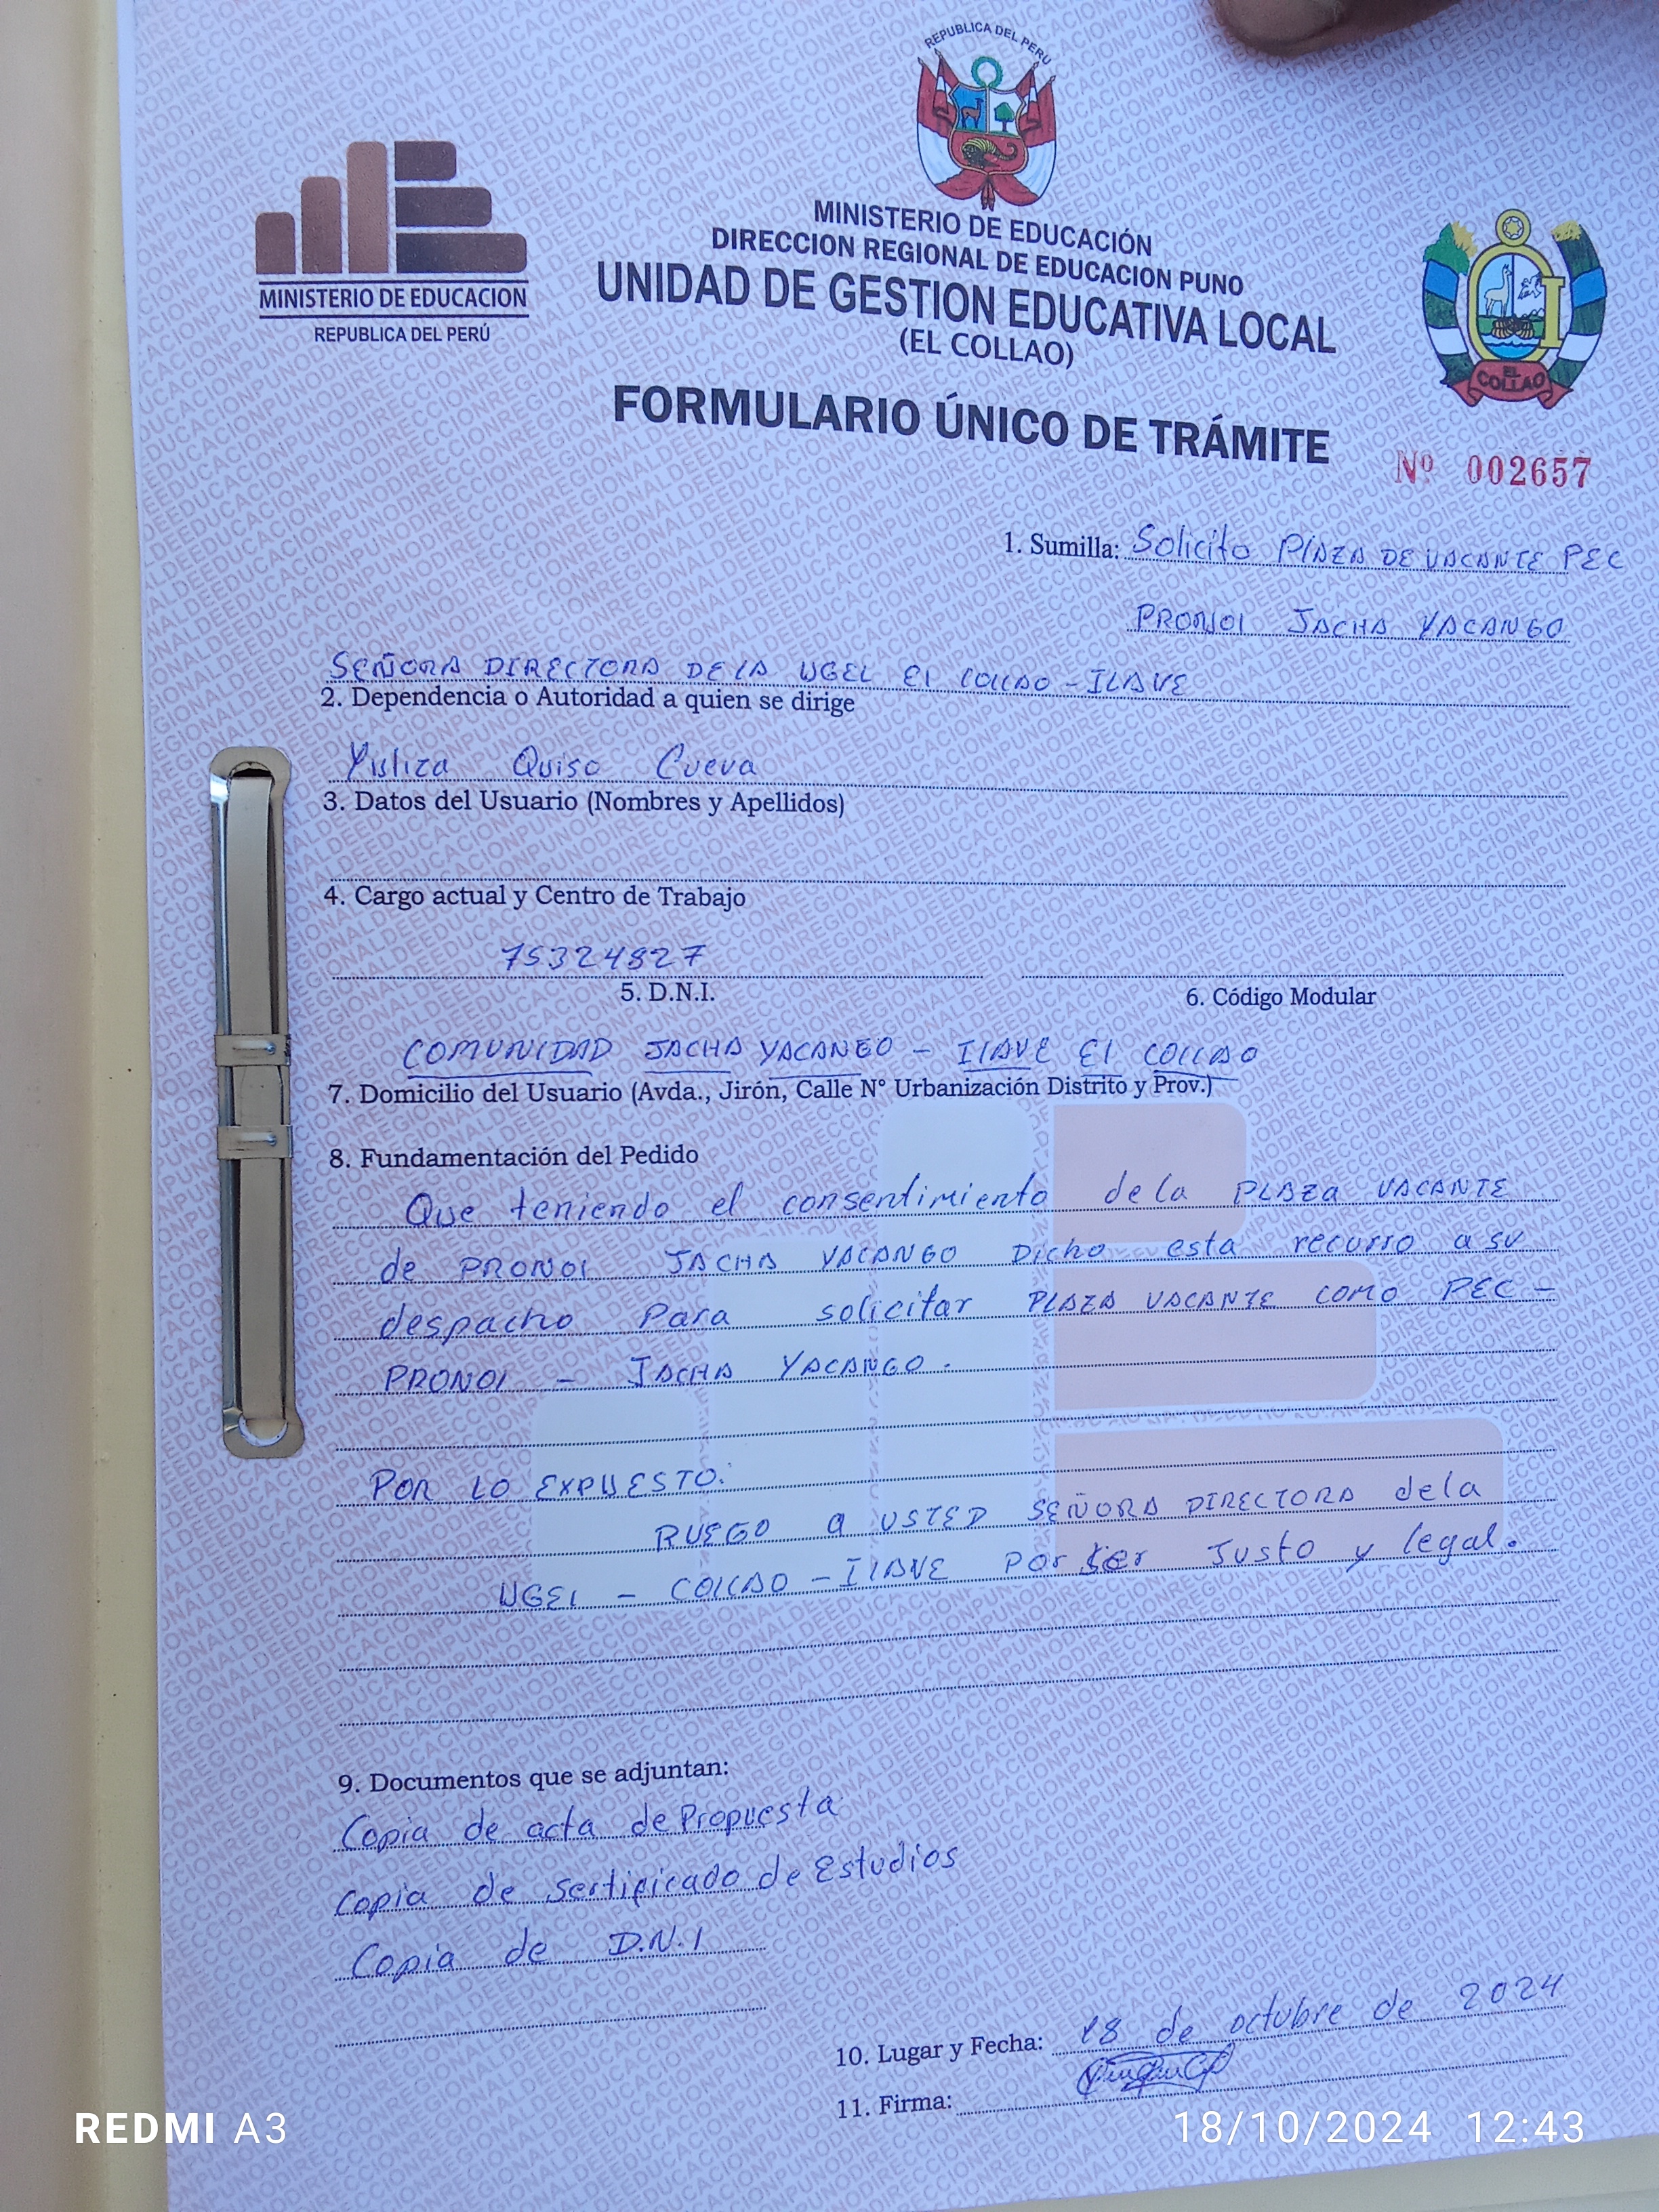 REPUBLICA DEL PERU
MINISTERIO DE EDUCACION
REPUBLICA DEL PERÚ
MINISTERIO DE EDUCACIÓN
DIRECCION REGIONAL DE EDUCACION PUNO
UNIDAD DE GESTION EDUCATIVA LOCAL
(EL COLLAO)
EL COLLAO
FORMULARIO ÚNICO DE TRÁMITE
Nº 002657
1. Sumilla: Solicito PLAZA DE VACANTE PEC
PRONOI JACHA YACANGO
SEÑORA DIRECTORA DE LA UGEL El COLLAO - ILAVE
2. Dependencia o Autoridad a quien se dirige
Yuliza Quiso Cueva
3. Datos del Usuario (Nombres y Apellidos)
4. Cargo actual y Centro de Trabajo
75324827
5. D.N.I.
6. Código Modular
COMUNIDAD JACHA YACANGO - ILAVE El COLLAO
7. Domicilio del Usuario (Avda., Jirón, Calle N° Urbanización Distrito y Prov.)
8. Fundamentación del Pedido
Que teniendo el consentimiento de la PLAZA VACANTE
de PRONOI JACHA YACANGO Dicho esta recurro a su
despacho Para solicitar PLAZA VACANTE COMO PEC -
PRONOI - JACHA YACANGO.
POR LO EXPUESTO:
RUEGO a USTED SEÑORA DIRECTORA de la
UGEL - COLLAO - ILAVE POR Ser Justo y legal.
9. Documentos que se adjuntan:
Copia de acta de Propuesta
Copia de sertificado de Estudios
Copia de D.N.I
10. Lugar y Fecha: 18 de octubre de 2024
11. Firma:
REDMI A3
18/10/2024 12:43